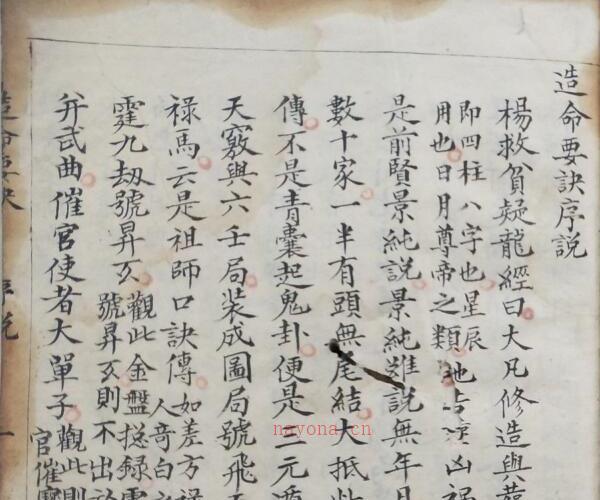 造命要訣序說
楊救貧疑龍經曰大凡修造與葬
即四柱八字也星辰
用也日月尊帝之類
凶禍
是前賢景純說景純雖說無年月
數十家一半有頭無尾結大抵
傳不是青囊起鬼卦便是三元
天竅與六壬局裝成圖局號飛
祿馬云是祖師口訣傳如差方祿
人奇白
霆九劫號昇玄觀此金盤捴録
號昇玄則不出於
并武曲催官使者大單子觀此則
官催
造命要訣
序說
一
nayona.cn